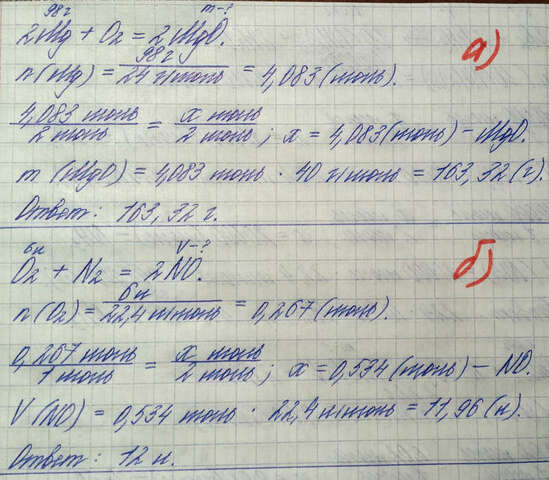 98г m-?
2Mg + O₂ = 2MgO. а)
n(Mg) = 98г / 24 г/моль = 4,083 (моль).
4,083 моль / 2 моль = x моль / 2 моль ; x = 4,083 (моль) – MgO.
m (MgO) = 4,083 моль · 40 г/моль = 163,32 (г).
Ответ: 163,32 г.
6л V-?
O₂ + N₂ = 2NO. б)
n(O₂) = 6л / 22,4 л/моль = 0,267 (моль).
0,267 моль / 1 моль = x моль / 2 моль ; x = 0,534 (моль) – NO.
V (NO) = 0,534 моль · 22,4 л/моль = 11,96 (л).
Ответ: 12 л.